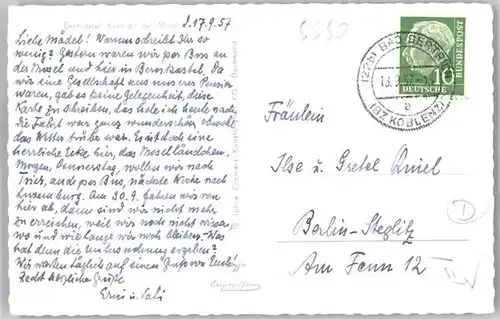 Bernkastel-Kues an der Mosel
d. 17.9.57
5550
Liebe Mädel! Warum schreibt Ihr so
wenig? Gestern waren wir per Bus an
der Mosel und hier in Bernkastel. Da
wir eine Gesellschaft aus uns. rer Pension
waren, gab es keine Gelegenheit, diese
Karte zu schreiben, das hole ich heute nach.
Die Fahrt war ganz wunderschön obwohl
das Wetter trübe war. Es ist doch eine
herrliche Ecke hier, das Moselländchen.
Morgen, Donnerstag, wollen wir nach
Trier, auch per Bus, nächste Woche nach
Luxemburg. Am 30.9. fahren wir von
hier ab, dann sind wir nicht mehr
zu erreichen, weil wir noch nicht wissen
wo und wie lange wir noch bleiben. Was
hat denn die Untersuchung ergeben?
Wir warten täglich auf einen Gruß von Euch!
Recht herzliche Grüße
Erni u.
(22b) BAD BERTRICH
18.9.57
a
(BZ. KOBLENZ)
10
DEUTSCHE
BUNDESPOST
Fräulein
Ilse u. Gretel
Berlin-Steglitz
Am Fenn 12
D